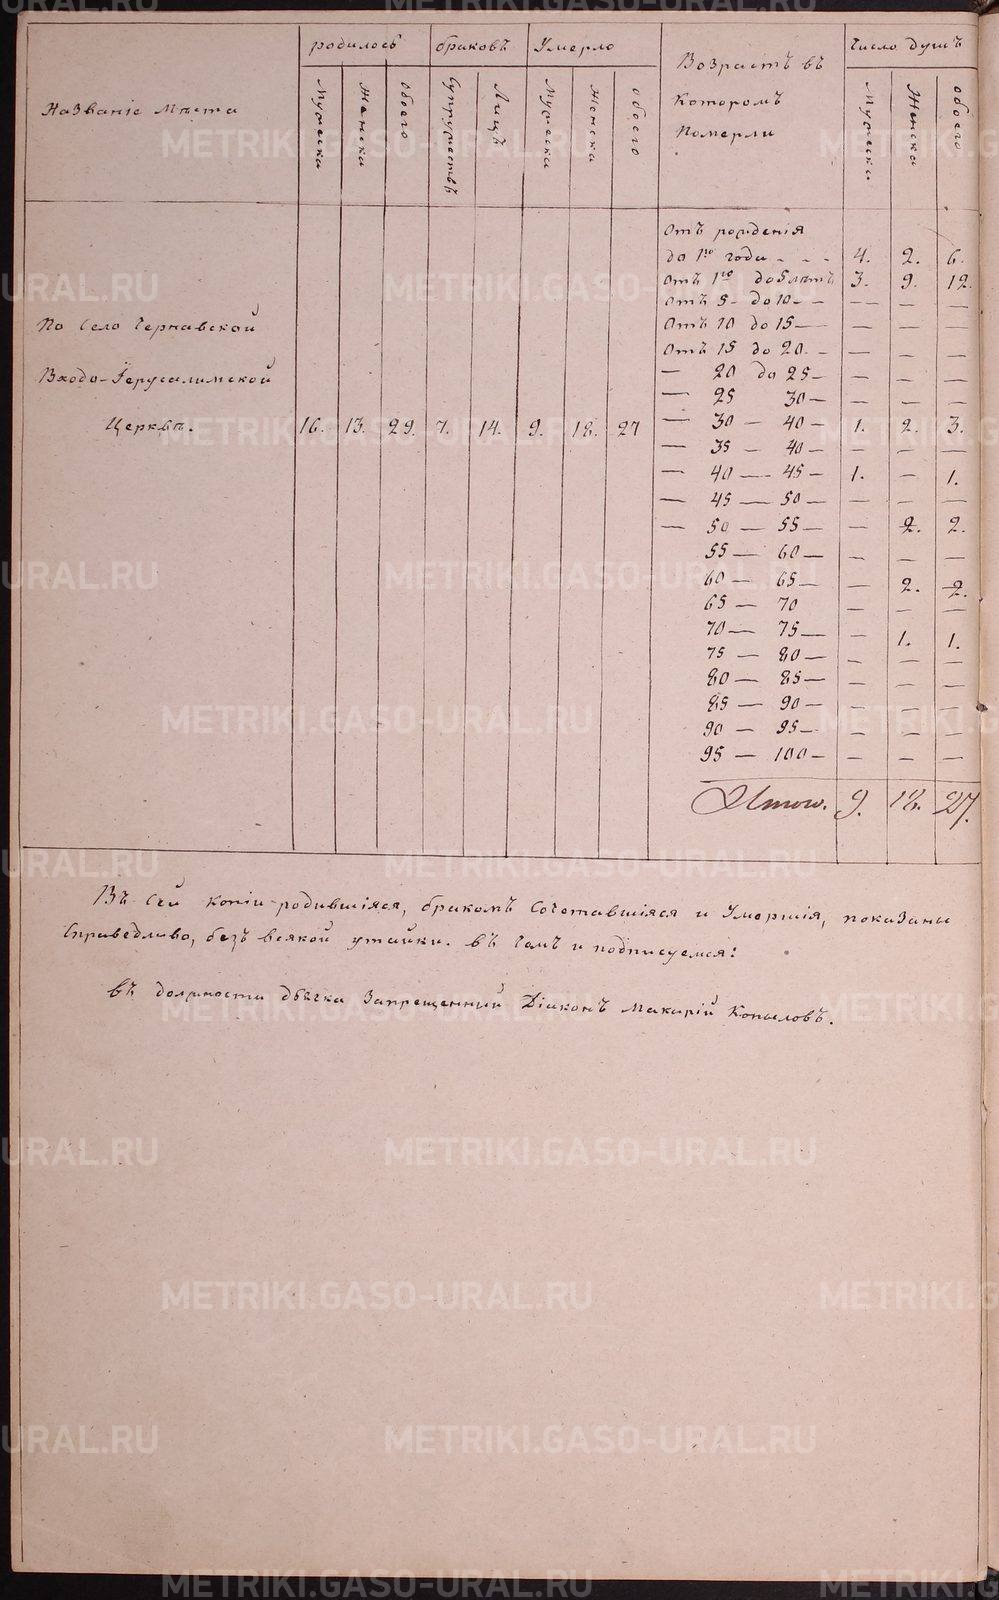 родилось браковъ Умерло Возрастъ въ Число душъ
Названіе Мѣста
Которомъ
Померли
Мужеска Женска Обоего Супружествъ Лицъ Мужеска Женска обоего Мужеска Женска обоего
Отъ рожденія
до 1го года - - - 4. 2. 6.
Отъ 1го до 5 лѣтъ 3. 9. 12.
Отъ 5 - до 10 - - — — —
По Село Чернавской Отъ 10 до 15 — — — —
Отъ 15 до 20. - — — —
Входо-Іерусалимской — 20 до 25 - — — —
— 25 30 — — — —
Церквѣ. 16. 13. 29. 7. 14. 9. 18. 27 — 30 — 40 — 1. 2. 3.
— 35 — 40 — — — —
— 40 — 45 — 1. — 1.
— 45 — 50 — — — —
— 50 — 55 — — 2. 2.
55 — 60 — — — —
60 — 65 — — 2. 2.
65 — 70 — — —
70 — 75 — — 1. 1.
75 — 80 — — — —
80 — 85 — — — —
85 — 90 — — — —
90 — 95 — — — —
95 — 100 — — — —
Итого. 9. 18. 27.
Въ Сей копіи родившіяся, бракомъ Сочетавшіяся и Умершія, показаны
Справедливо, безъ всякой утайки. въ чемъ и подписуемся:
въ должности дьячка Запрещенный Діаконъ Макарій Копыловъ.
METRIKI.GASO-URAL.RU